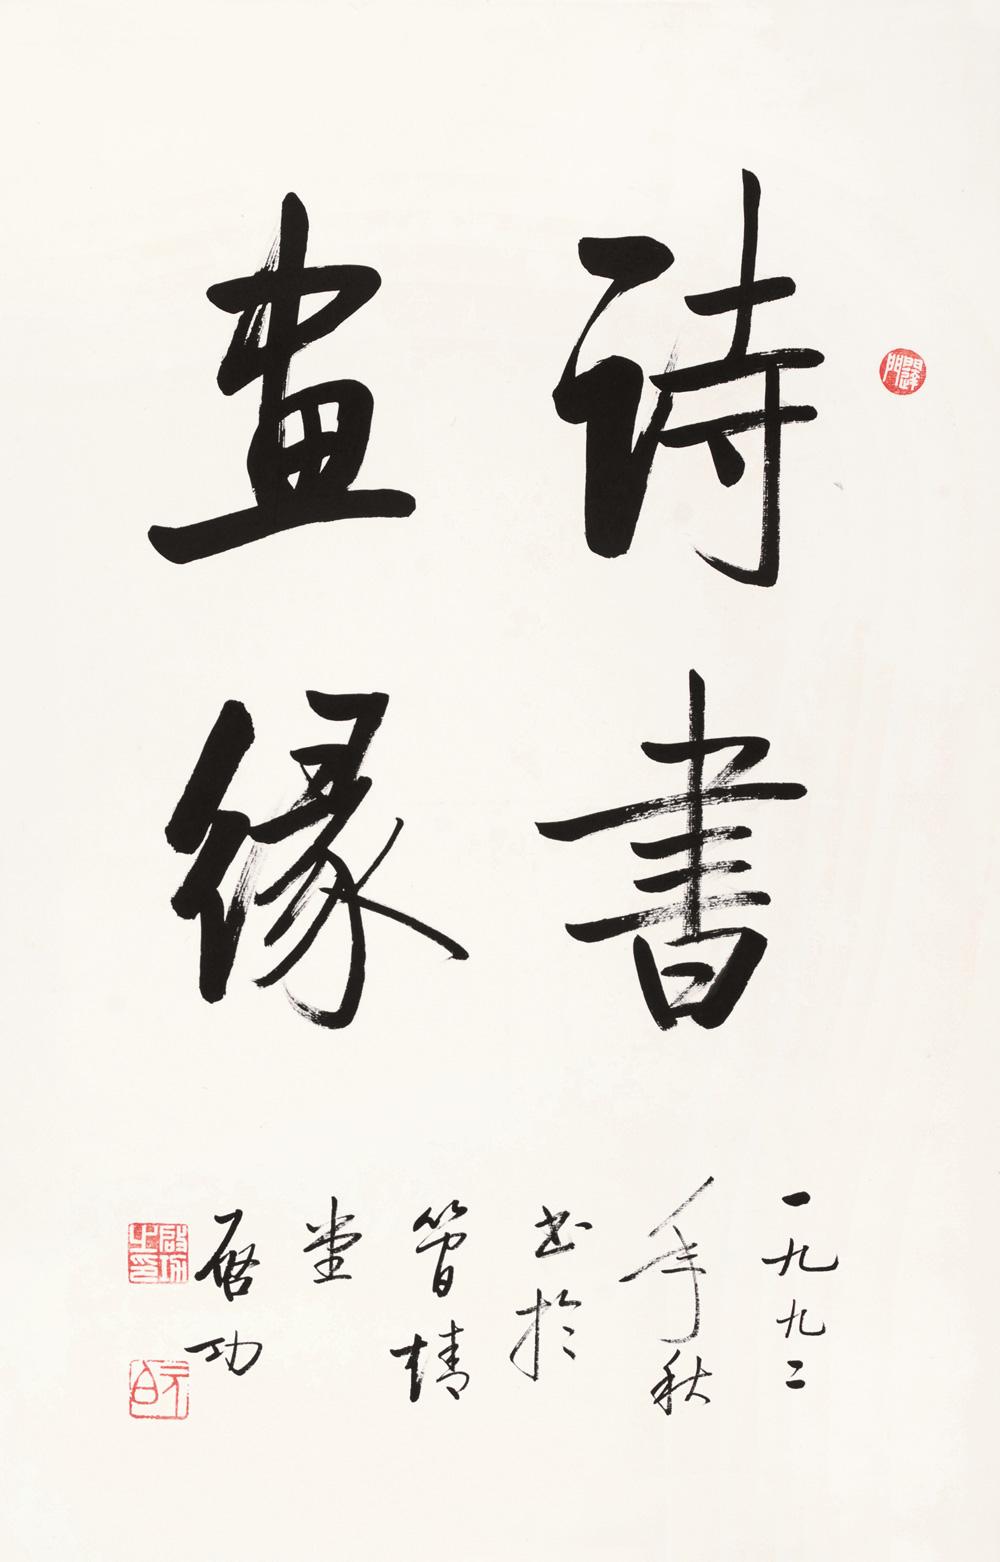 詩書
畫緣
一九九二
年秋
書於
堂
啟功
啟功之印
元白